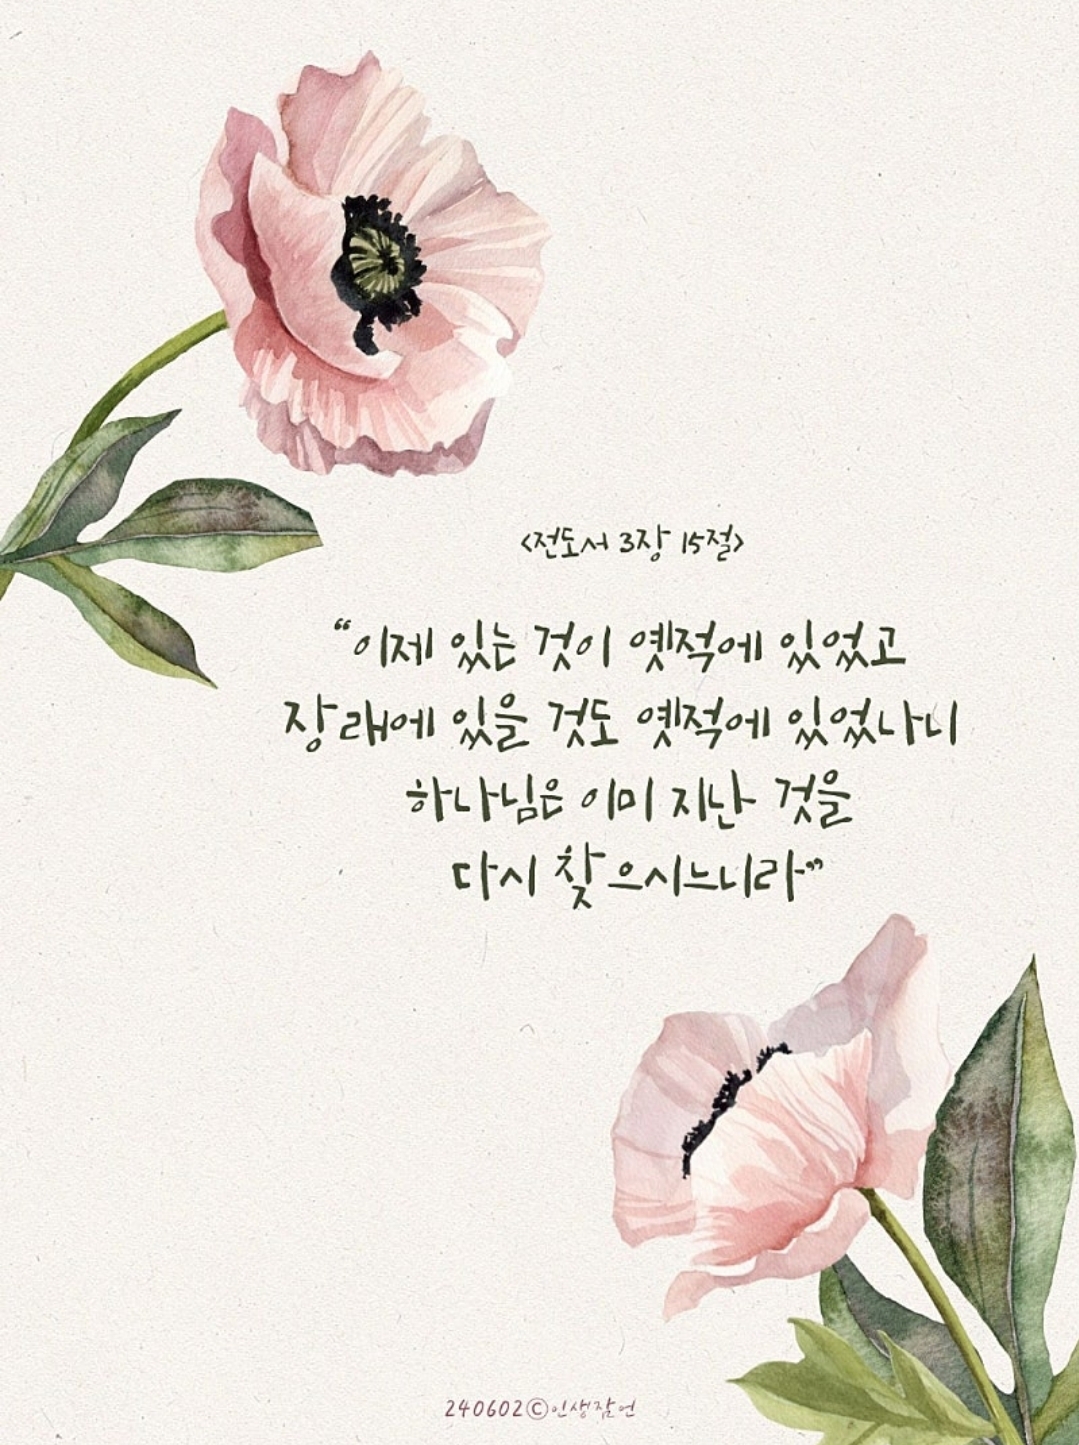 <전도서 3장 15절>
“이제 있는 것이 옛적에 있었고
장래에 있을 것도 옛적에 있었나니
하나님은 이미 지난 것을
다시 찾으시느니라”
240602ⓒ인생잠언